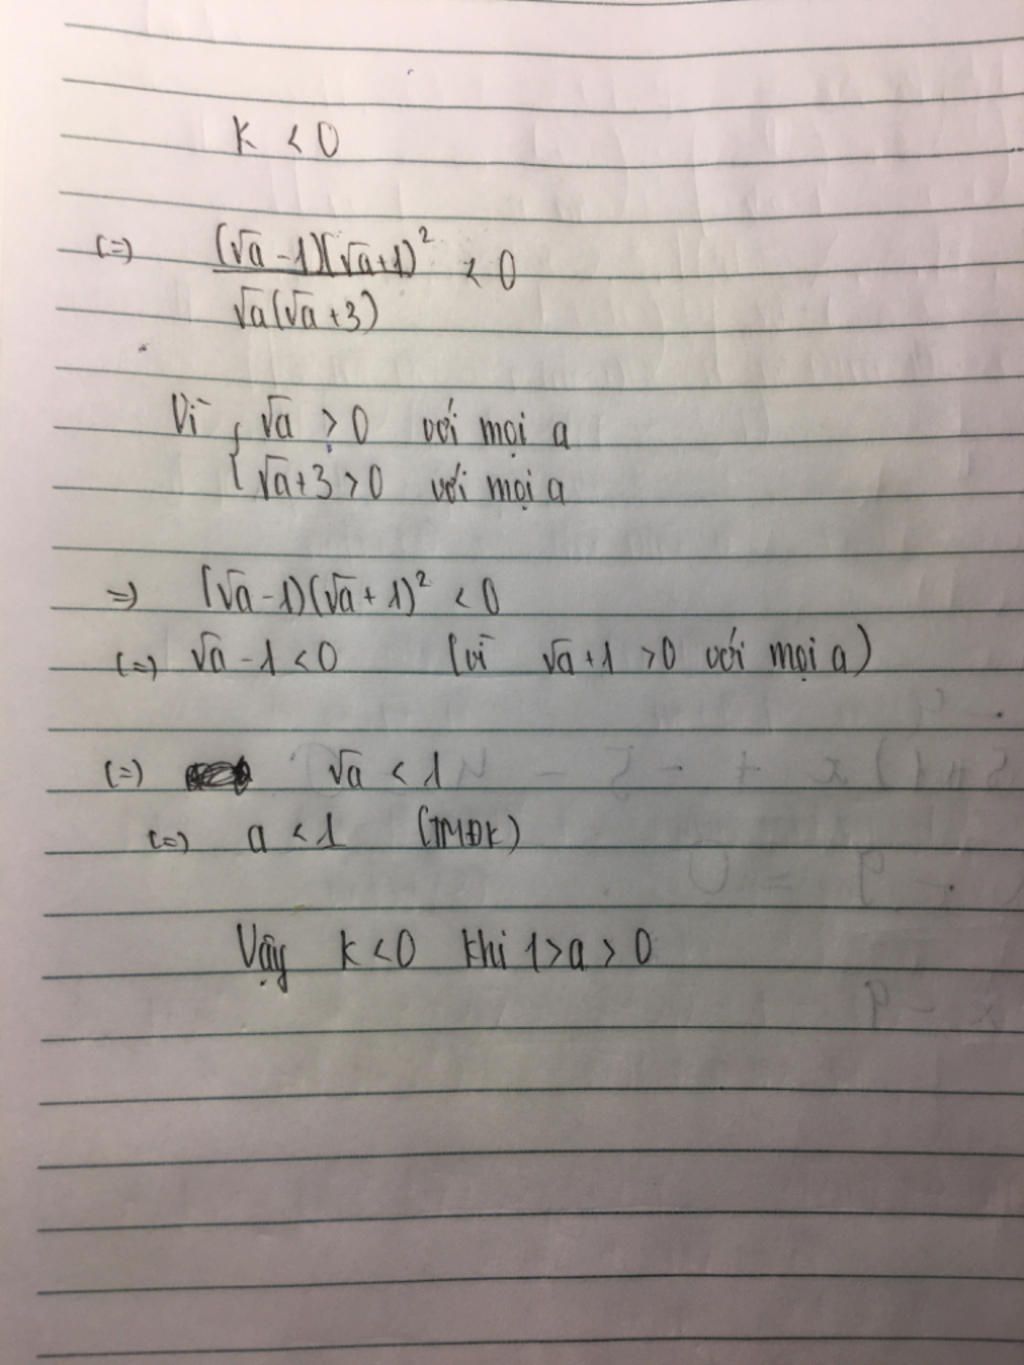 K < 0
(=) (√a - 1)(√a+1)² / √a(√a+3) < 0
Vì { √a > 0 với mọi a
√a+3 > 0 với mọi a
=) (√a - 1)(√a + 1)² < 0
(=) √a - 1 < 0 (vì √a + 1 > 0 với mọi a)
(=) √a < 1
(=) a < 1 (TMĐK)
Vậy K < 0 khi 1 > a > 0